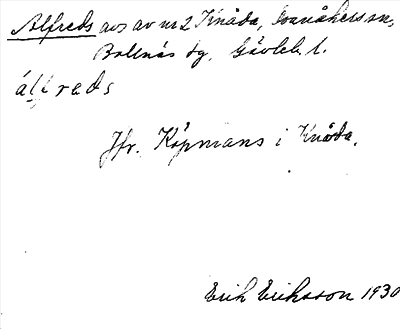 Alfreds avs av nr 2 Knåda, Ovanåkers sn,
Bollnäs dg, Gävleb. l.
álfreds
Jfr. Köpmans i Knåda.
Erik Eriksson 1930